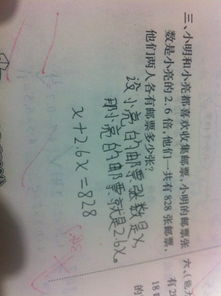 三、小明和小亮都喜欢收集邮票,小明的邮票张
数是小亮的2.6倍,他们一共有828张邮票,
他们两人各有邮票多少张?
设小亮的邮票张数是x,
那小亮的邮票就是2.6x。
x+2.6x=828
六、
有2
18.
的